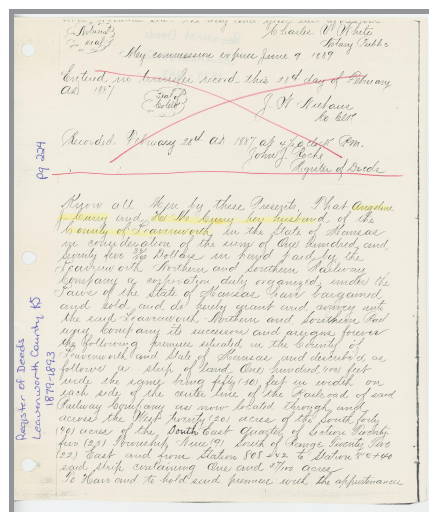 Notarial Seal
Charles V White
Notary Public
My commission expires June 9 1889
Entered in transfer record this 28th day of February
AD 1887
Seal of
J. W. Niehaus
Co Clk
Recorded February 28th AD 1887 at o'clock P.m.
John J. Roche
Register of Deeds
pg 224
Know all Men by these Presents, That
Curry and Curry her husband of the
County of Leavenworth, in the State of Kansas
in consideration of the sum of One Hundred and
Seventy five Dollars in hand paid by the
Leavenworth Northern and Southern Railway
Company a corporation duly organized under the
Laws of the State of Kansas have bargained
and sold, and do hereby grant and convey unto
the said Leavenworth Northern and Southern Rail
way Company its successors and assigns forever
the following premises situated in the County of
Leavenworth and State of Kansas and described as
follows a strip of land One hundred feet
wide the same being fifty (50) feet in width on
each side of the center line of the Railroad of said
Railway Company as now located through and
across the West Twenty (20) acres of the South forty
(40) acres of the South East Quarter of section Twenty
two (22) Township Nine (9) South of Range Twenty Two
(22) East and from Station 808 to Station
said strip containing One and /100 acres
To Have and to hold said premises with the appurtenances
Register of Deeds
Leavenworth County KS
1879-1893